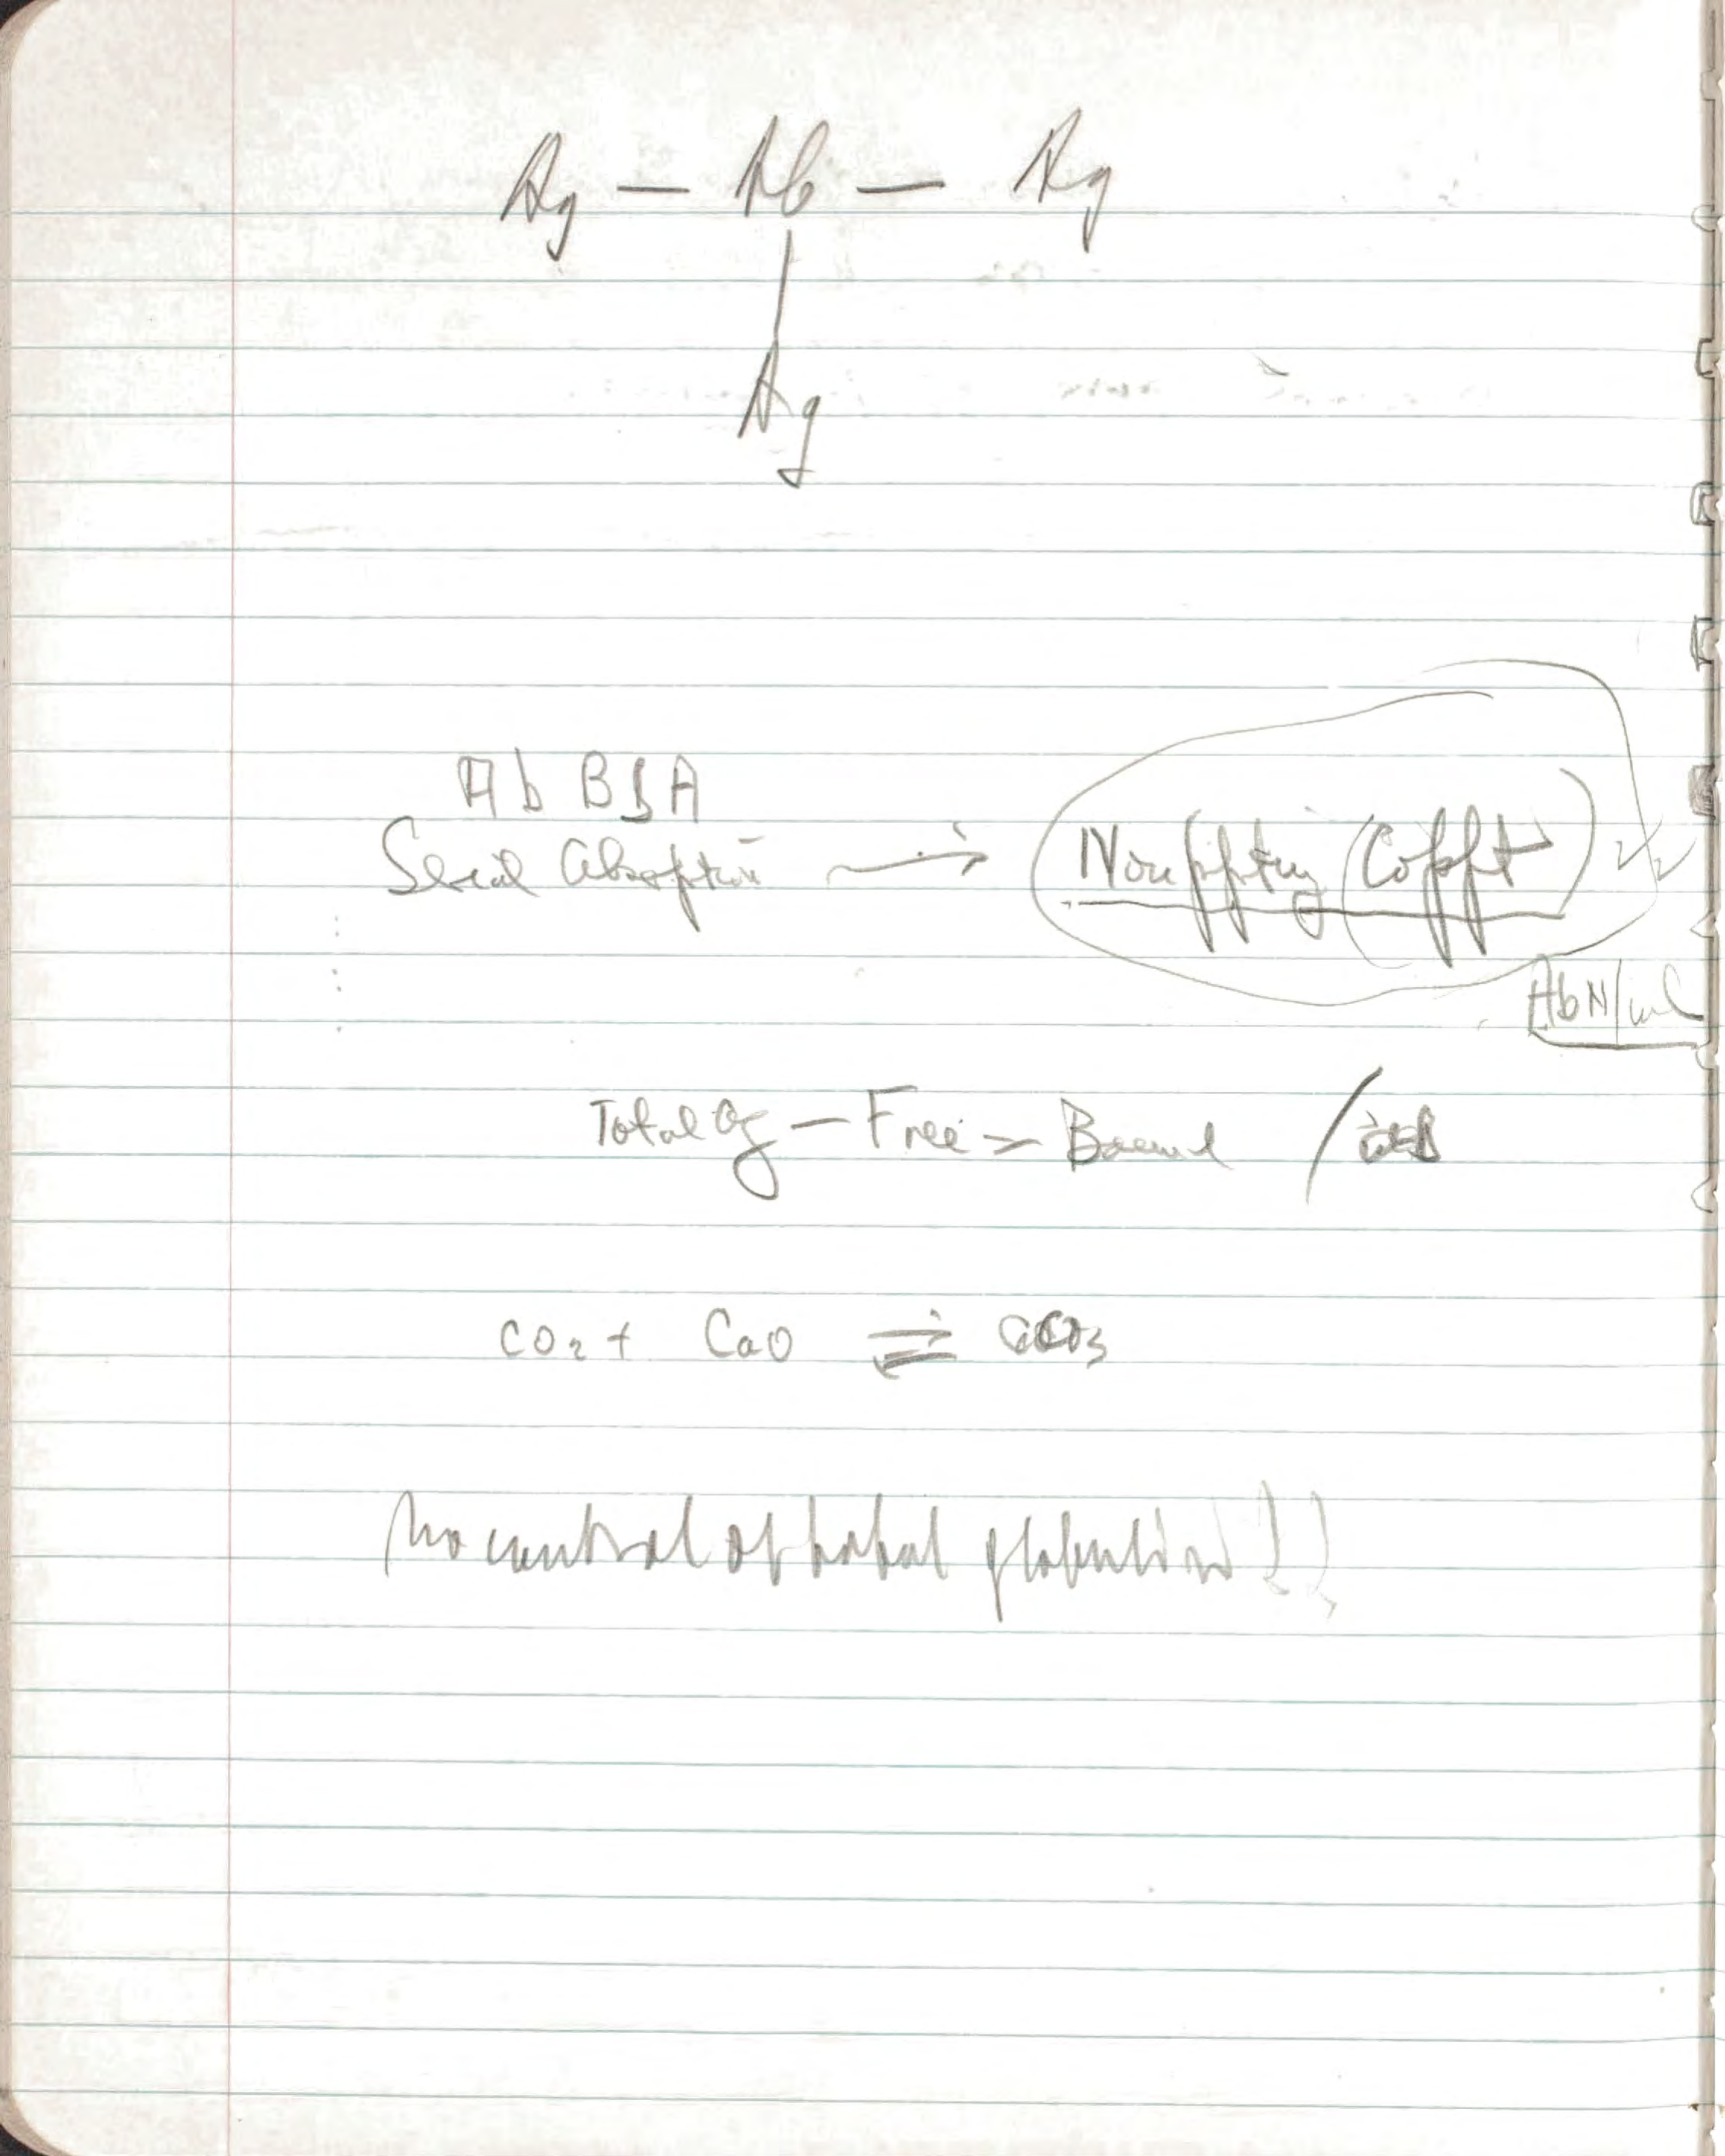 Ag — Ab — Ag
Ag
Ab BSA
Serial Absorption → Nonppting (Coppt)
AbN/ml
Total Ag — Free = Bound /
CO2 + CaO ⇌ CaCO3
No control of total globulin!!